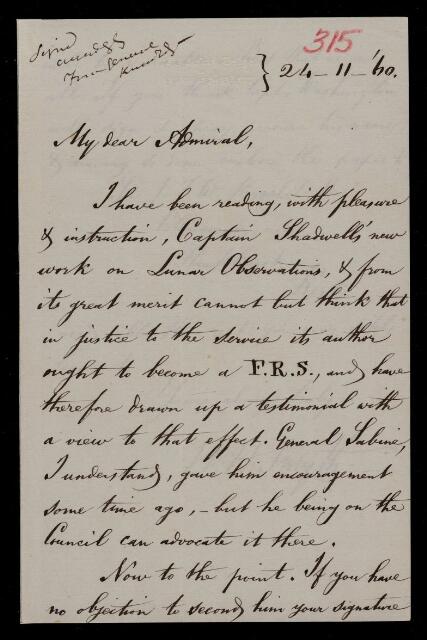 Signd
from General
315
24-11-'60.
My dear Admiral,
I have been reading, with pleasure
& instruction, Captain Shadwell's new
work on Lunar Observations, & from
its great merit cannot but think that
in justice to the service its author
ought to become a F.R.S., and have
therefore drawn up a testimonial with
a view to that effect. General Sabine,
I understand, gave him encouragement
some time ago, - but he being on the
Council can advocate it there.
Now to the point. If you have
no objection to second him your signature